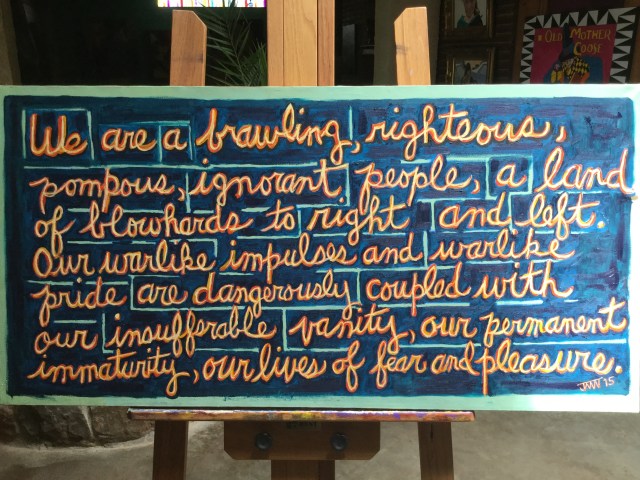 OLD MOTHER
GOOSE
We are a brawling, righteous,
pompous, ignorant people, a land
of blowhards to right and left.
Our warlike impulses and warlike
pride are dangerously coupled with
our insufferable vanity, our permanent
immaturity, our lives of fear and pleasure.
JWW '15